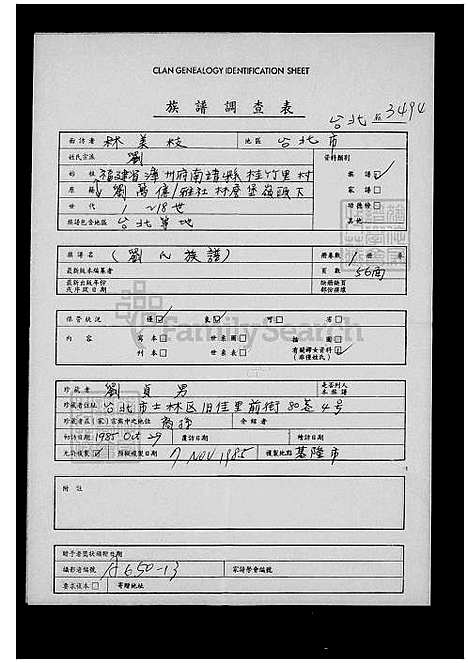 CLAN GENEALOGY IDENTIFICATION SHEET
族譜調查表
台北 3494
面訪者 林美枝 地區 台北市
姓氏宗派 劉 資料類別
始祖 福建省漳州府南靖縣桂竹里村 族譜
原籍 劉萬億 林磨堡嶺頭下 家譜
世代 1~18世 功德榜
族譜包含地區 台北等地 其他
譜名 (劉氏族譜) 冊卷數 1
最新版本編纂者 頁數 56
最新出版年份或序跋日期 缺殘錯頁部份描寫
保管狀況 優 良 可 劣
內容 寫本 世系圖 插圖
刊本 世系表 有關婦女資料(非僅姓氏)
珍藏者 劉貞男 是否列入本族譜
珍藏者住址 台北市士林區旧佳里前街80巷4号
珍藏者在(家)宗族中之地位 裔孫 介紹者
初訪日期 1985 Oct 29 覆訪日期 續訪日期
允許複製 預擬複製日期 7 NOV 1985 複製地點 基隆市
附註
贈予者獎狀頒贈日期
攝影者編號 A650-13 家譜學會編號
要求複本 寄贈地址
FamilySearch